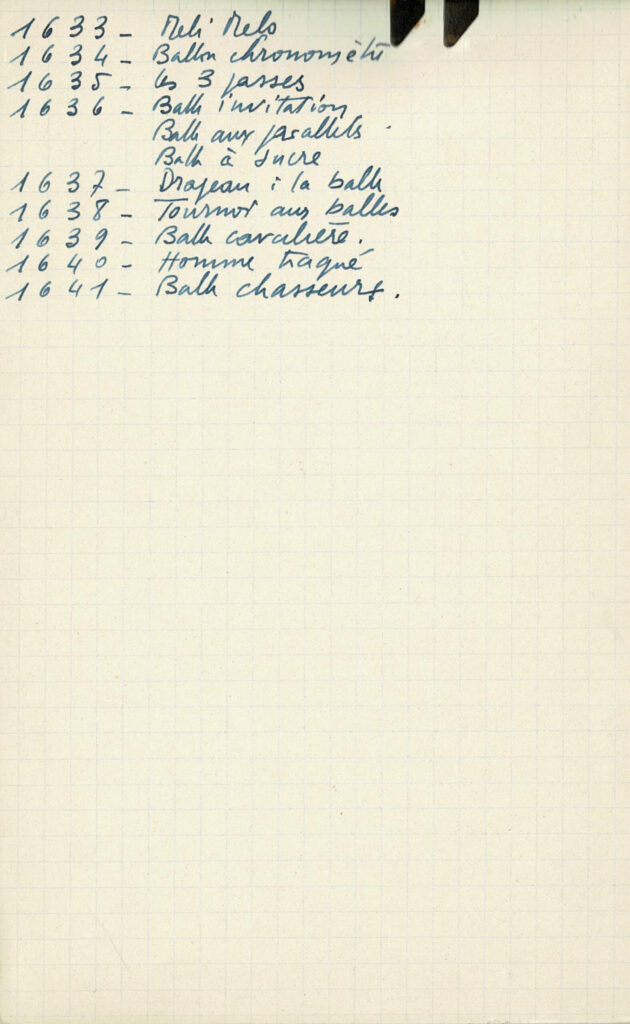 1633 - Meli Melo
1634 - Ballon chronomètre
1635 - les 3 passes
1636 - Balle invitation
Balle aux parallèles
Balle à sucre
1637 - Drapeau à la balle
1638 - Tournoi aux balles
1639 - Balle cavalière.
1640 - Homme traqué
1641 - Balle chasseurs.